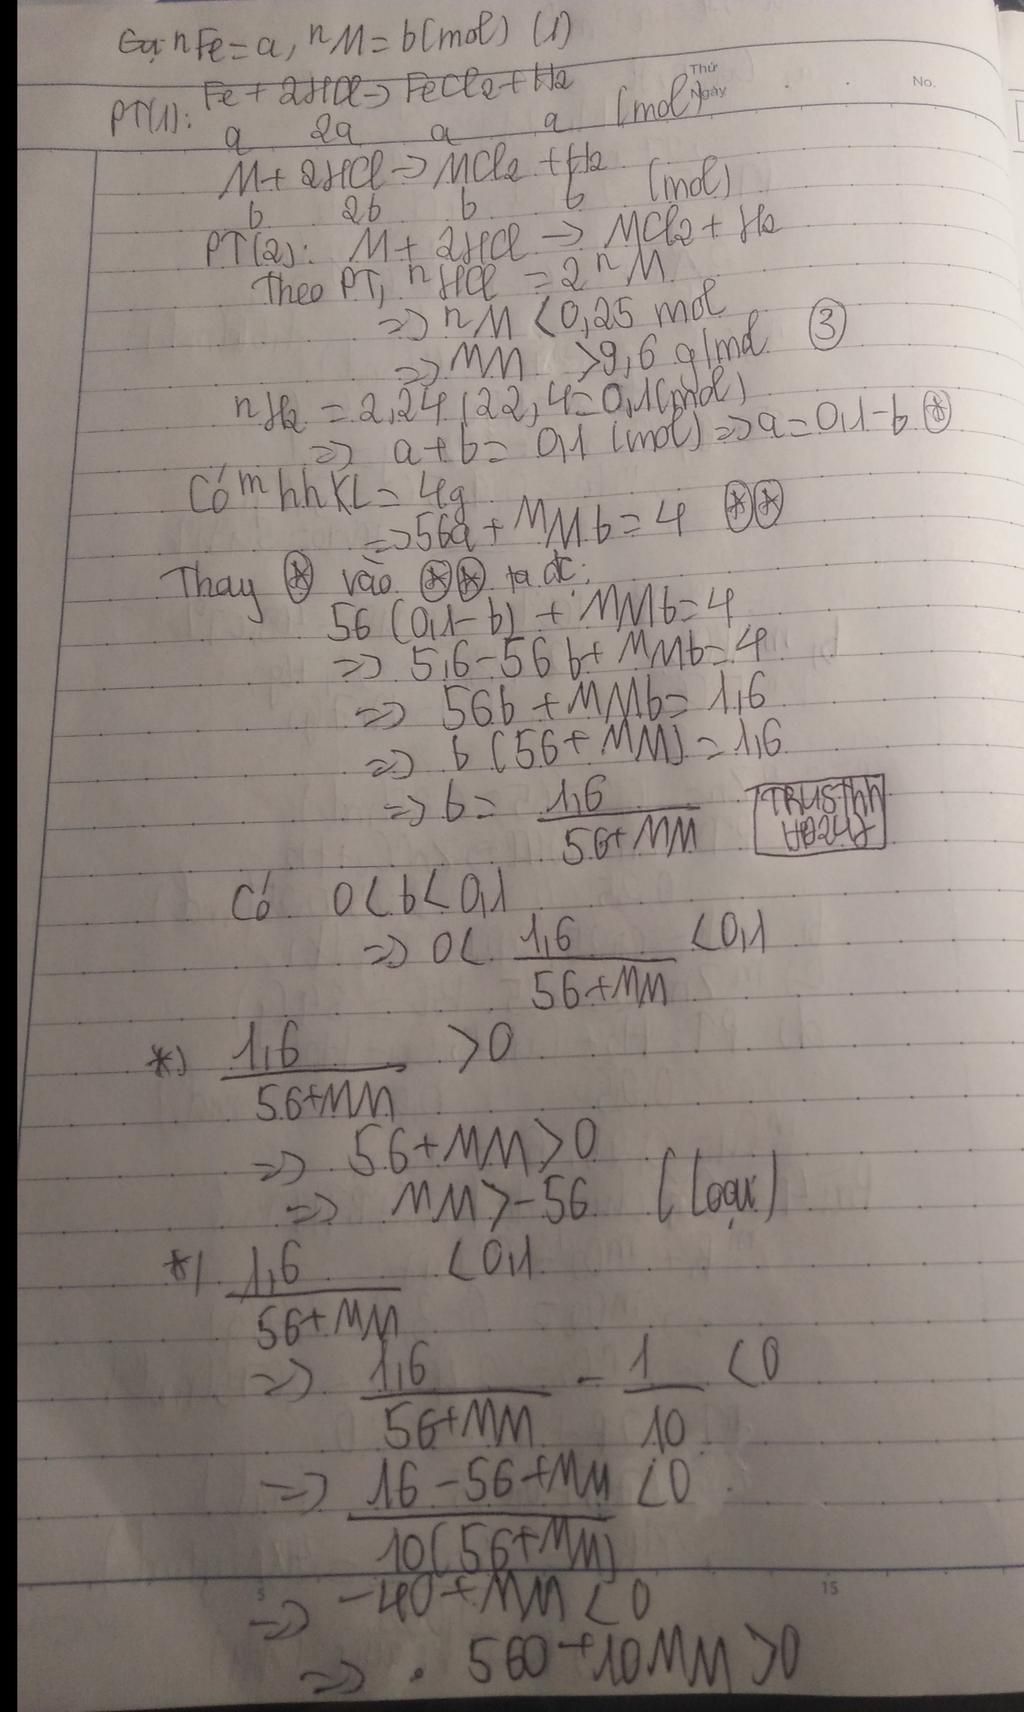 Gọi nFe = a, nM = b (mol) (1)
Thứ
Ngày
No.
PT(1): Fe + 2HCl → FeCl2 + H2
a 2a a a (mol)
M + 2HCl → MCl2 + H2
b 2b b b (mol)
PT(2): M + 2HCl → MCl2 + H2
Theo PT, nHCl = 2nM
=> nM < 0,25 mol
=> MM > 9,6 g/mol (3)
nH2 = 2,24 / 22,4 = 0,1 (mol)
=> a + b = 0,1 (mol) => a = 0,1 - b (*)
Có m hh KL = 4g
=> 56a + MMb = 4 (*)(*)
Thay (*) vào (*)(*) ta đc:
56 (0,1 - b) + MMb = 4
=> 5,6 - 56b + MMb = 4
=> 56b + MMb = 1,6
=> b (56 + MM) = 1,6
=> b = 1,6 / 56 + MM
Có 0 < b < 0,1
=> 0 < 1,6 / 56 + MM < 0,1
*) 1,6 / 56 + MM > 0
=> 56 + MM > 0
=> MM > -56 (loại)
*) 1,6 / 56 + MM < 0,1
=> 1,6 / 56 + MM - 1 / 10 < 0
=> 16 - 56 + MM / 10(56 + MM) < 0
5 15
=> -40 + MM < 0
=> . 560 + 10MM > 0